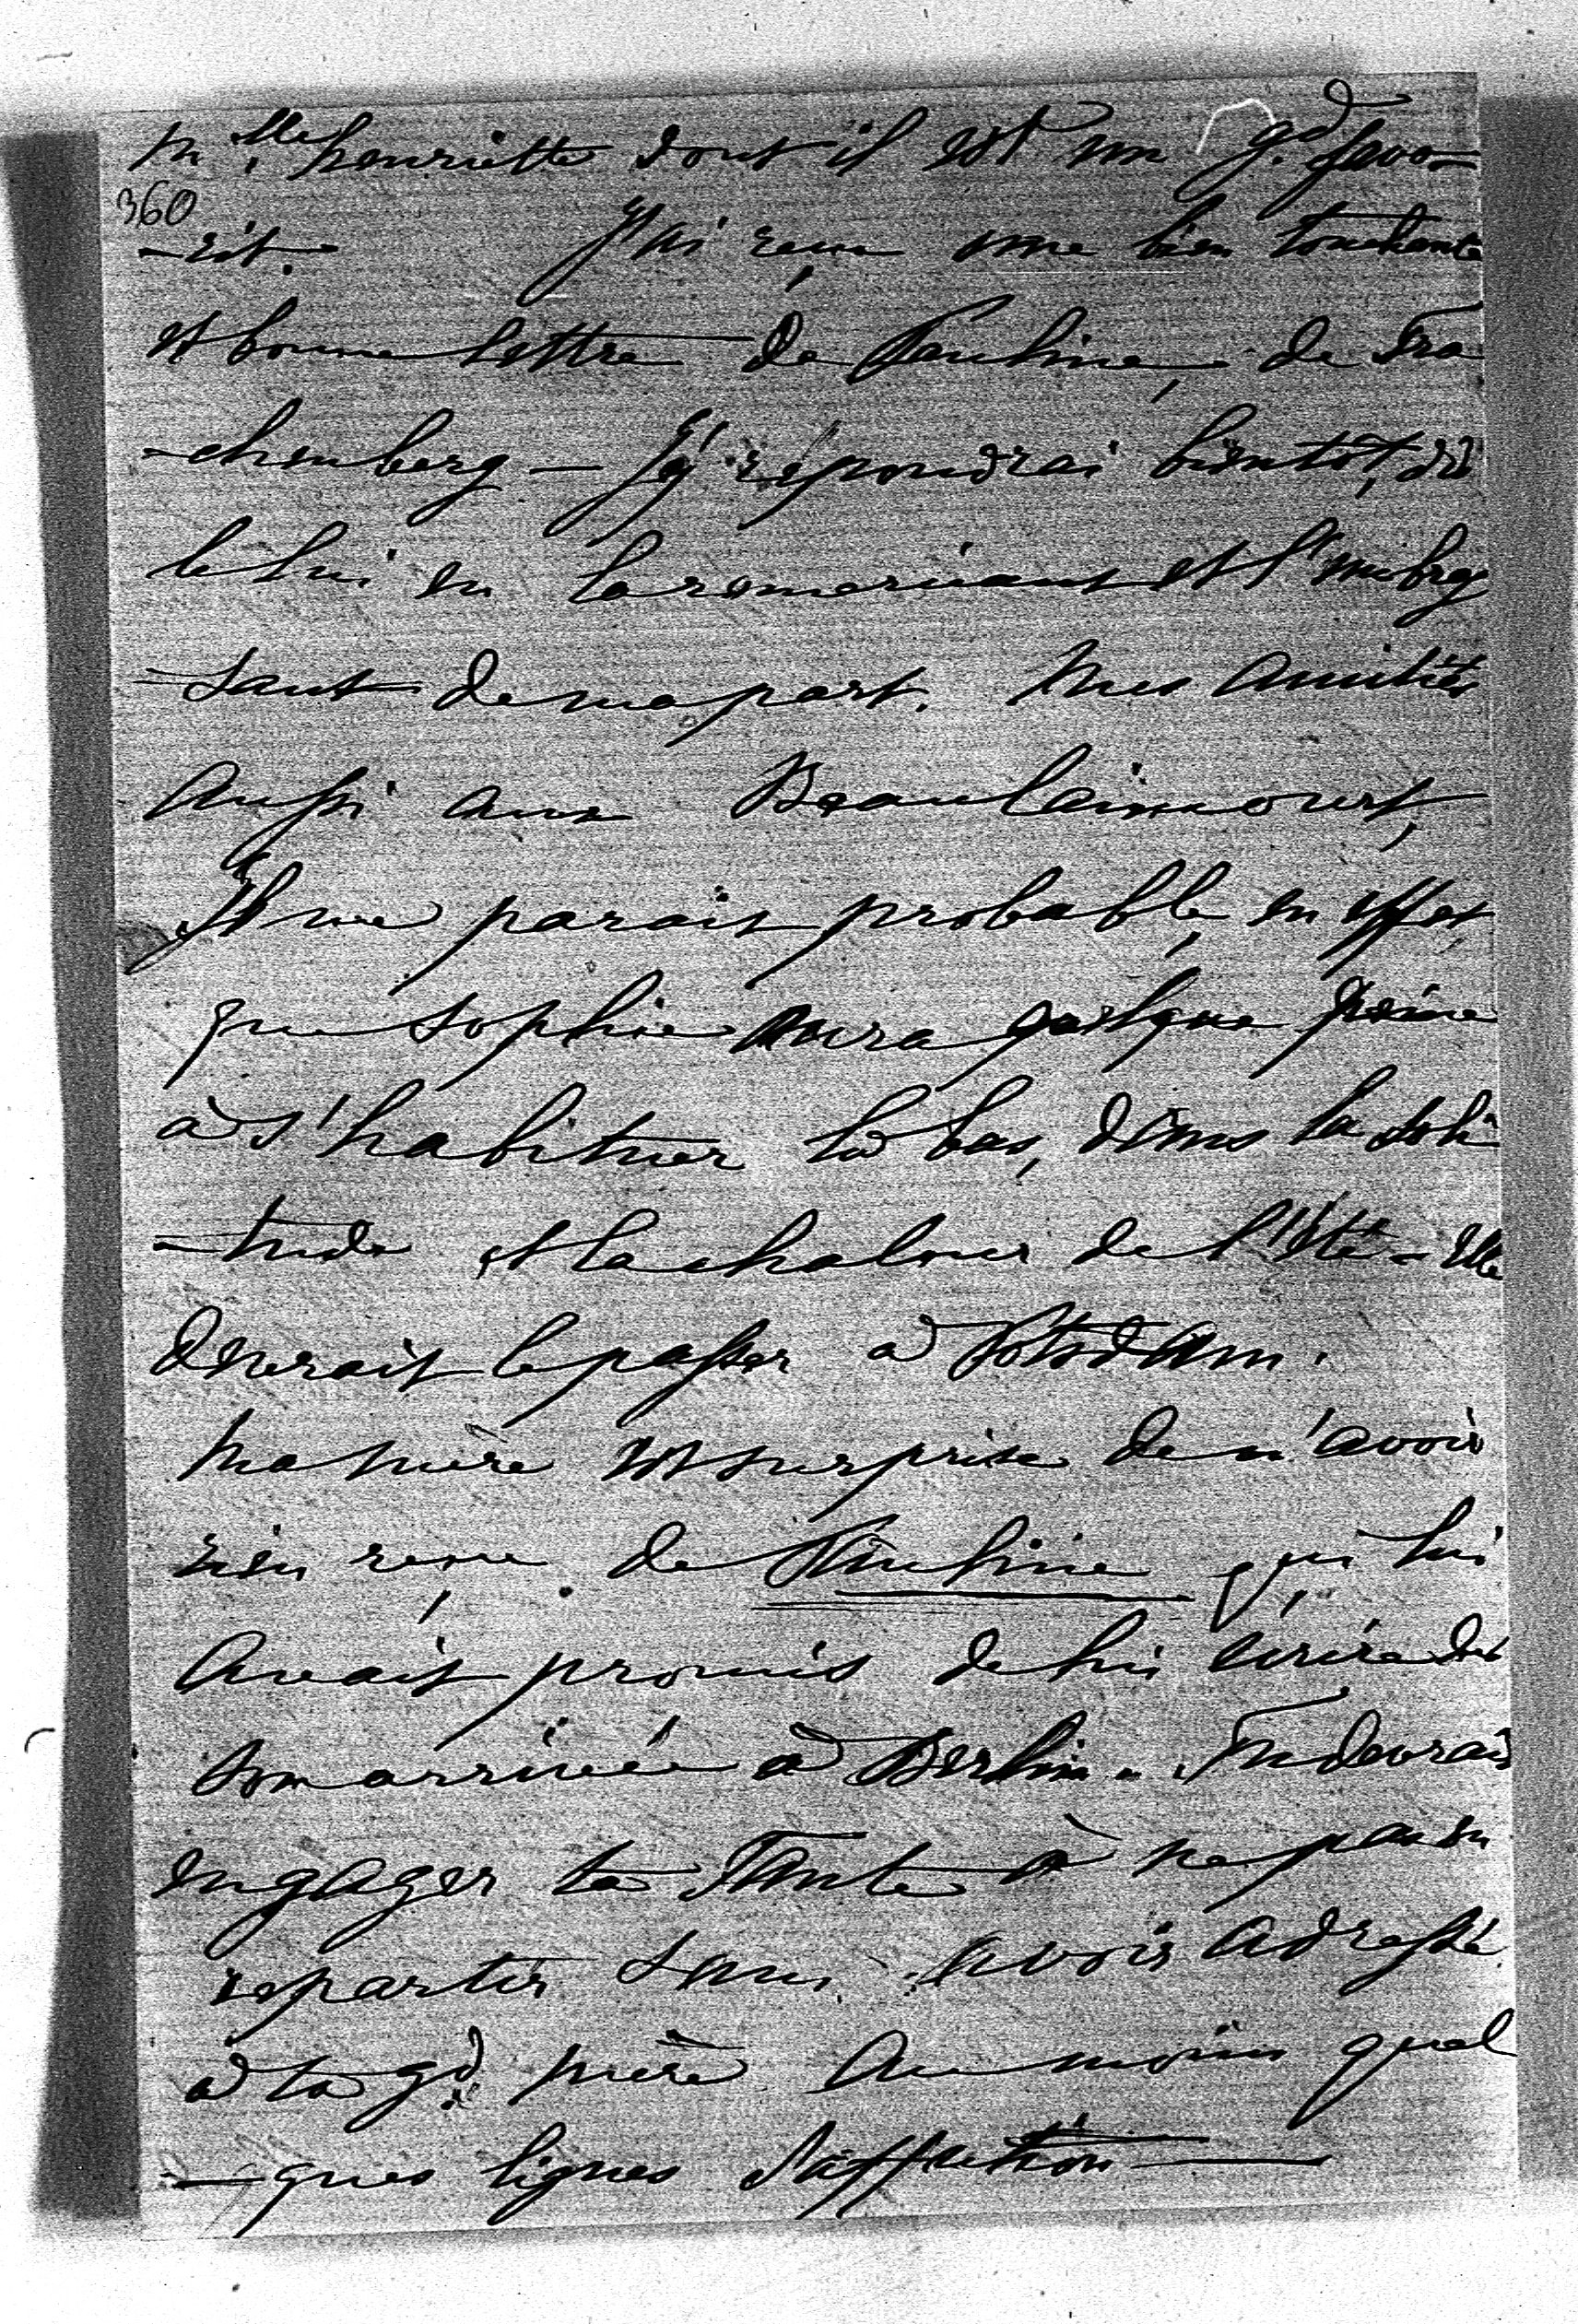 Mlle henriette dont il est un gd favo-
360
-rit. J'ai reçu une bien touchante
et bonne lettre de Pauline, de Tra
-chenberg – J'y répondrai bientôt, dis
le lui en la remerciant et l'embras
-sant de ma part. Mes amitiés
aussi aux Beaulaincourt,
Il me parait probable, en effet,
que Sophie aura quelque peine
à s'habituer là bas, dans la soli
-tude et la chaleur de l'été – Elle
devrait le passer à Potsdam.
Ma mère est surprise de n'avoir
rien reçu de Pauline qui lui
avait promis de lui écrire dès
son arrivée à Berlin – Tu devrais
engager ta Tante à ne pas en
repartir sans avoir adressé
à ta gd mère au moins quel
-ques lignes d'affection –